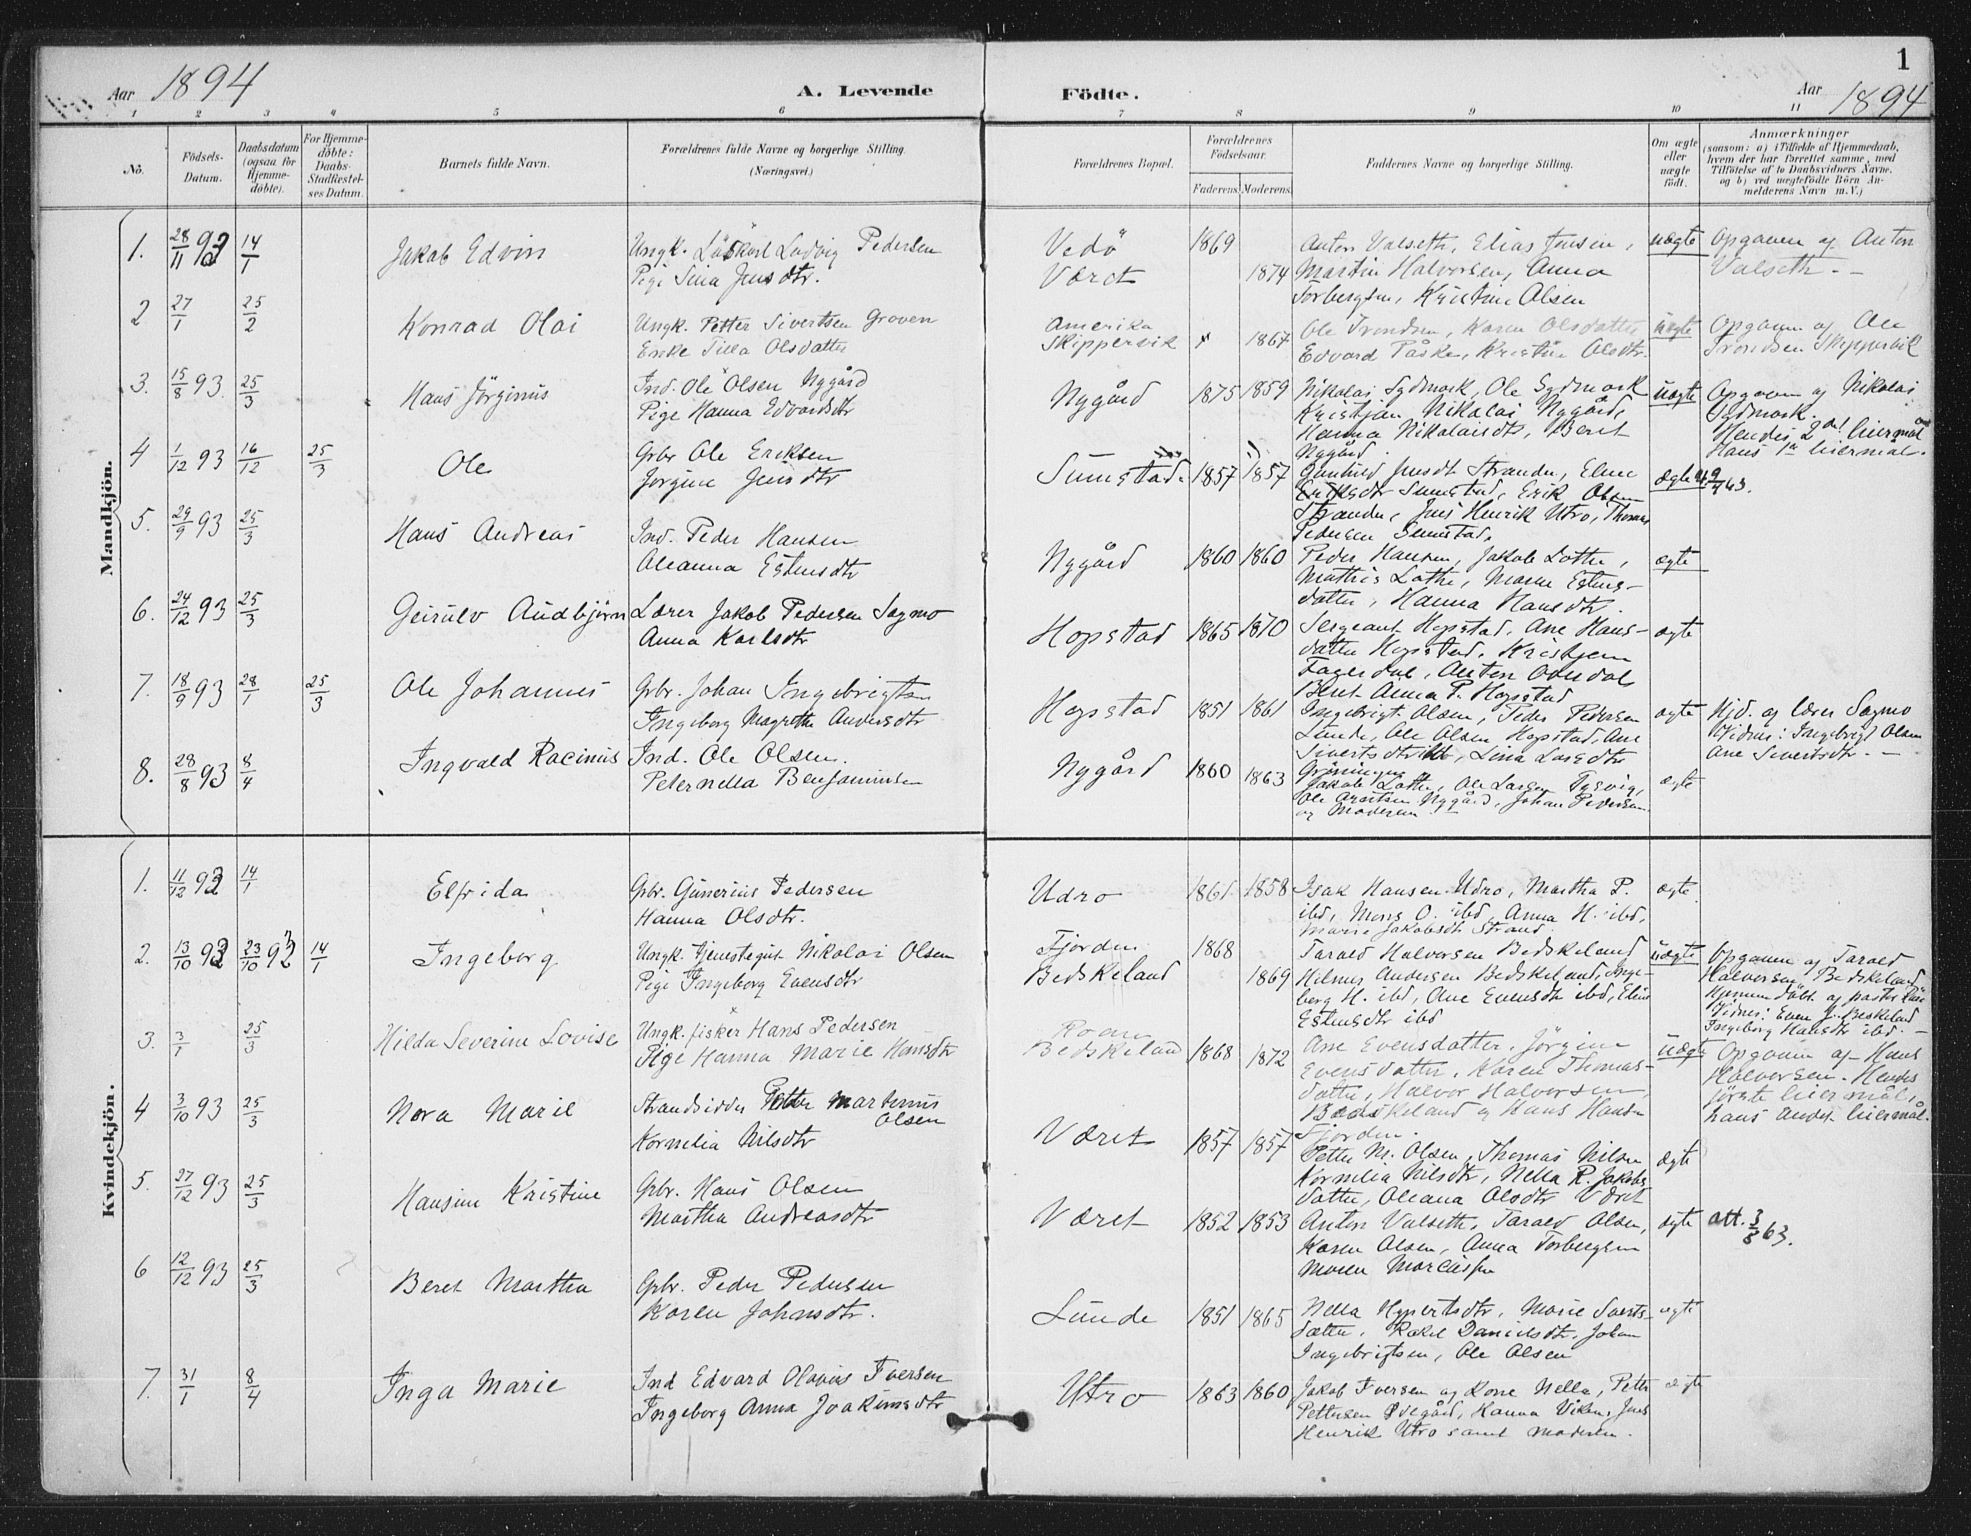 1
Aar 1894
A. Levende
Födte.
Aar 1894
1 2 3 4 5 6 7 8 9 10 11
No.
Födsels-Datum.
Daabsdatum (ogsaa for Hjemme-döbte).
For Hjemme-döbte: Daabs-Stadfæstelses Datum.
Barnets fulde Navn.
Forældrenes fulde Navne og borgerlige Stilling. (Næringsvei.)
Forældrenes Bopæl.
Forældrenes Födselsaar.
Faderens. Moderens.
Faddernes Navne og borgerlige Stilling.
Om ægte eller uægte födt.
Anmærkninger
(saasom: a) i Tilfælde af Hjemmedaab,
hvem der har forrettet samme, med
Tilföielse af to Daabsvidners Navne,
og b) ved uægtefödte Börn An-
melderens Navn m. V.)
Mandkjön.
1. 28/11 93 14/1 Jakob Edvin
Ungk. Ludvig Pedersen
Pige Sina Jensdtr.
Vedö 1869
Været 1874
Anton Valseth, Elias Jensen,
Martin Halvorsen, Anna
Torbergsen, Kristine Olsen
uægte
Opgaven af Anton
Valseth. -
2 27/1 25/2 Konrad Olai
Ungk. Petter Sivertsen Groven
Enke Olsdatter
Amerika
Skippervik 1867
Ole Trondsen, Karen Olsdatter
Edvard Påske, Kristine Olsdtr.
uægte
Opgaven af Ole
Trondsen Skippervik
3. 15/8 93. 25/3 Hans Jörginus
Ind. Ole Olsen Nygård
Pige Hanna Edvardsdtr
Nygård 1875 1859
Nikolai Sydmork, Ole Sydmork
Kristjan Nikolai Nygård,
Hanna Nikolaisdtr, Beret
Nygård.
uægte
Opgaven af Nikolai
Sydmork.
Hendes 2det leiermål
Hans 1ste leiermål.
4 1/12 93 16/12 25/3 Ole
Grbr Ole Eriksen
Jörgine Jensdtr
Sumstad. 1857 1857
Gunhild Jensdt Strander, Eline
Eriksdtr Sumstad, Erik Olsen
Strander, Jens Henrik Utro, Thomas
Pedersen Sumstad.
ægte
5. 29/9 93 25/3 Hans Andreas
Ind. Peder Hansen
Oleanna Estensdtr
Nygård 1860 1860
Peder Hansen, Jakob Lothe,
Mathis Lothe, Maren Estens-
datter, Hanna Hansdtr.
ægte
6. 24/12 93 25/3 Geirulv Audbjörn
Lærer Jakob Pedersen Sagmo
Anna Karlsdtr
Hopstad 1865 1870
Sergeant Hopstad, Ane Hans-
datter Hopstad, Kristjern
Fagerdal, Anton Ovedal
Beret Anna P. Hopstad
ægte
7. 18/9 93 28/1 25/3 Ole Johannes
Grbr. Johan Ingebrigtsen
Ingeborg Magrethe Andersdtr
Hopstad 1851 1861
Ingebrigt Olsen, Peder Pedersen
Lunde, Ole Olsen Hopstad, Ane
Sivertsdtr ibd, Lina Larsdtr
Gröningen
ægte
Hjd. af lærer Sagmo
Vidner: Ingebrigt Olsen
Ane Sivertsdtr. -
8. 28/8 93 8/4 Ingvald Racinius
Ind. Ole Olsen.
Peternella Benjaminsen
Nygård 1860 1863
Jakob Lothe, Ole Larsen Tysvig,
Ole Nygård, Johan Pedersen
og Moderen
ægte
Kvindekjön.
1. 11/12 93 14/1 Elfrida
Grbr. Gunerius Pedersen
Hanna Olsdtr.
Udro 1861 1858
Isak Hansen Udro, Martha P.
ibd, Mons O. ibd, Anna H. ibd,
Marie Jakobsdt Strand
ægte
2. 13/10 93 23/10 93 14/1 Ingeborg
Ungk. tjenestegut Nikolai Olsen
Pige Ingeborg Evensdtr
Fjorden 1868
Bedskeland 1869
Tarald Halvorsen Bedskeland
Helmer Andersen Bedskeland, Inge-
borg H. ibd, Ane Evensdtr ibd, Eline
Estensdtr ibd
uægte
Opgaven af Tarald
Halvorsen Bedskeland
Hjemmedöbt af pastor
Vidner: Even J. Beskeland
Ingeborg Hansdtr ibd. -
3. 3/1 25/3 Hilda Severine Lovise
Ungk. fisker Hans Pedersen
Pige Hanna Marie Hansdtr
Roan
Bedskeland 1868 1872
Ane Evensdatter, Jörgine
Evensdatter, Karen Thomas-
datter, Halvor Halvorsen
Bedskeland og Hans Hansen
Fjorden.
uægte
Opgaven af Hans
Halvorsen. Hendes
förste leiermål,
hans andet leiermål.
4 3/10 93 25/3 Nora Marie
Strandsidder Petter Martinus
Olsen
Kornelia Nilsdtr
Været 1857 1857
Petter M. Olsen, Thomas Nilsen
Kornelia Nilsdtr, Nella R. Jakobs
datter, Oleana Olsdtr Været
ægte
5. 27/12 93 25/3 Hansine Kristine
Grbr. Hans Olsen
Martha Andreasdtr
Været 1852 1853
Anton Valseth, Tarald Olsen,
Karen Olsen, Anna Torbergsen
Maren
ægte
att. 3/8 63.
6 12/12 93 25/3 Beret Martha
Grbr. Peder Pedersen
Karen Johnsdtr.
Lunde 1851 1865
Nella Hypertsdtr, Marie
datter, Rakel Danielsdtr, Johan
Ingebrigtsen, Ole Olsen
ægte
7. 31/1 8/4 Inga Marie
Ind Edvard Olavius Iversen
Ingeborg Anna Joakimsdtr
Utro 1863 1860
Jakob Iversen og Kone Nella, Petter
Pettersen Ödegård, Hanna Viken, Jens
Henrik Utro samt moderen.
ægte